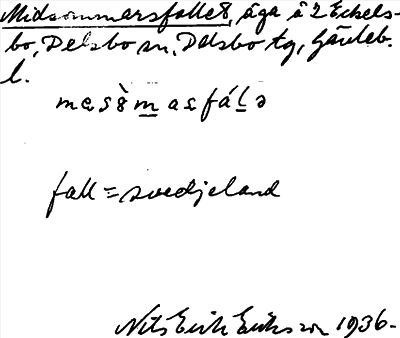 Midsommarsfallet, äga å 2 Eckels-
bo, Delsbo sn, Delsbo tg, Gävleb.
l.
fall = svedjeland
Nils Erik Eriksson 1936.